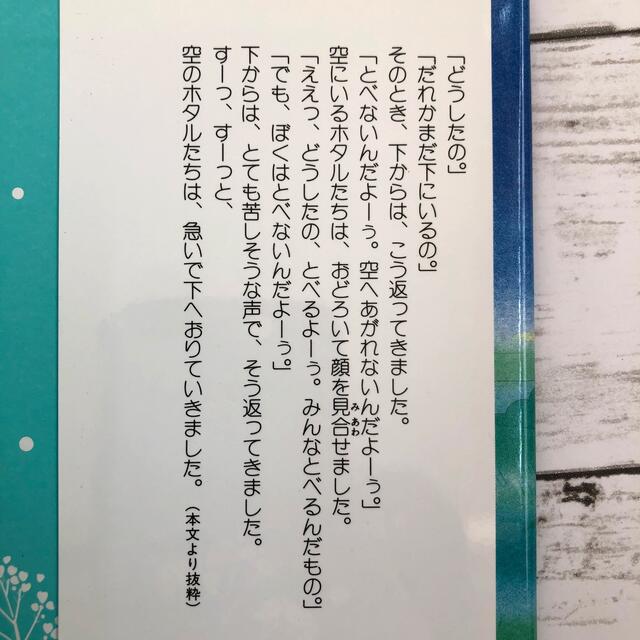 「どうしたの。」
「だれかまだ下にいるの。」
そのとき、下からは、こう返ってきました。
「とべないんだよーぅ。空へあがれないんだよーぅ。」
空にいるホタルたちは、おどろいて顔を見合せました。
みあわ
「ええっ、どうしたの、とべるよーぅ。みんなとべるんだもの。」
「でも、ぼくはとべないんだよーぅ。」
下からは、とても苦しそうな声で、そう返ってきました。
すーっ、すーっと、
空のホタルたちは、急いで下へおりていきました。（本文より抜粋）